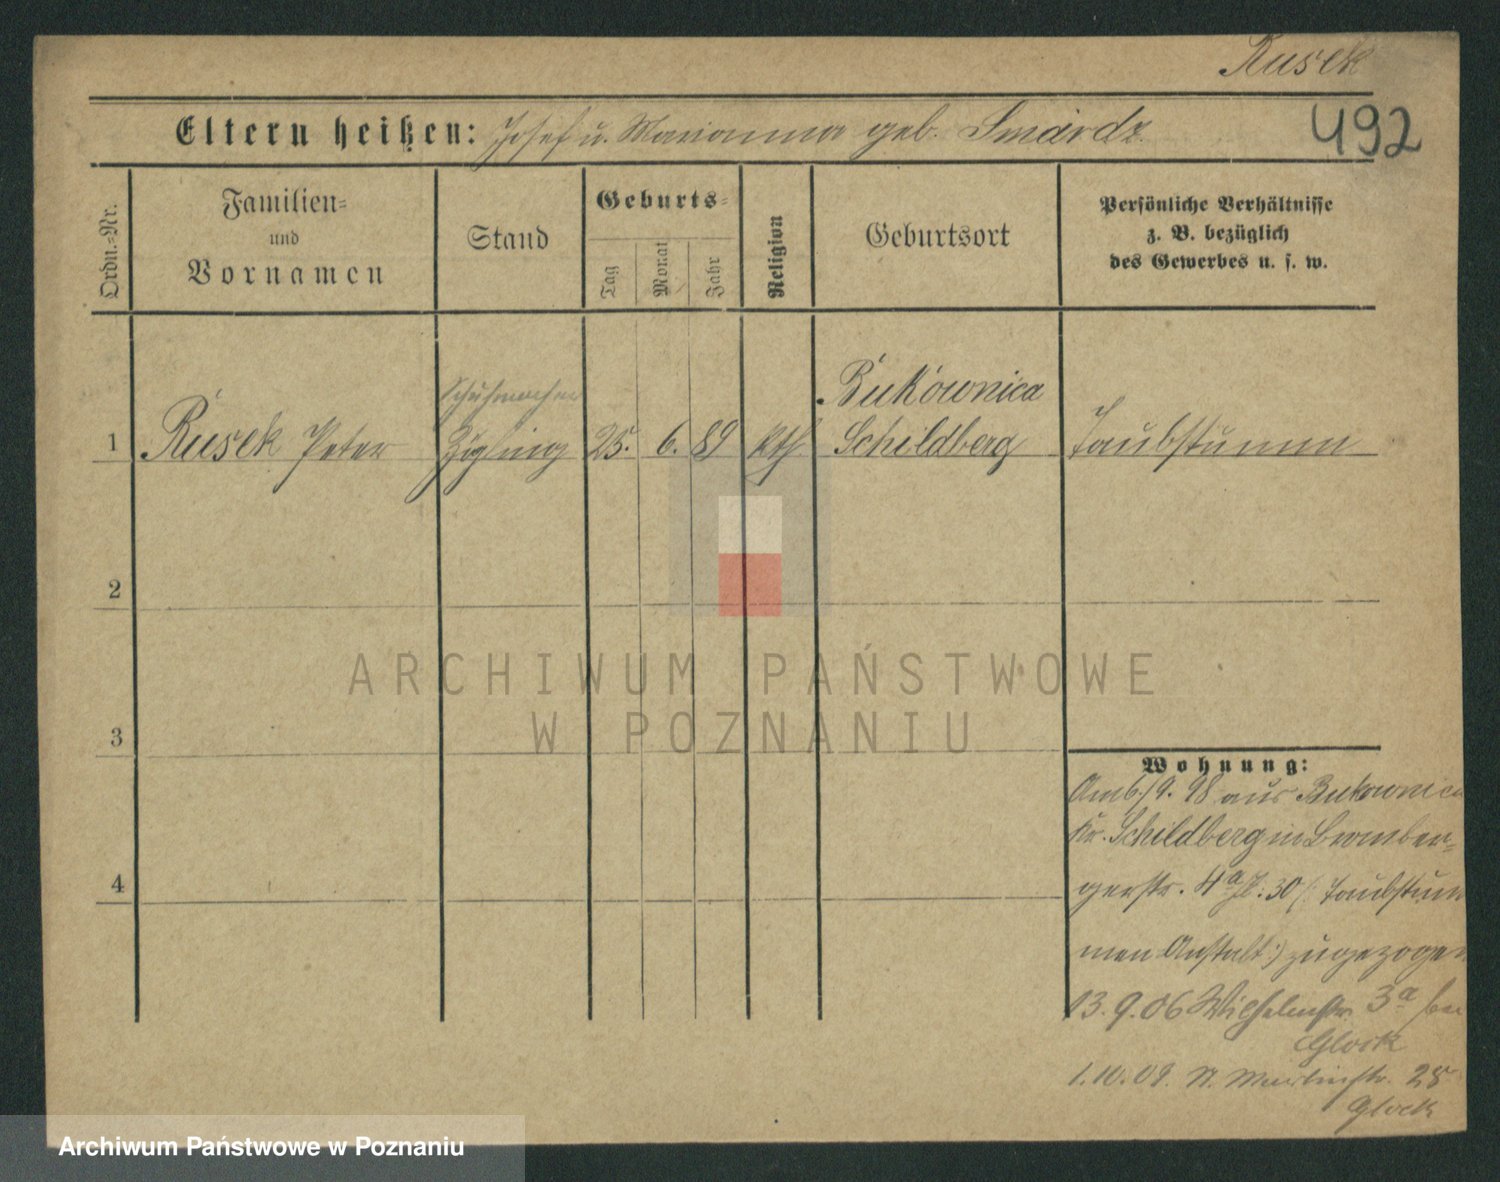 Rusek
Eltern heißen: Josef u. Marianna geb. Smardz
492
Ordn.=Nr.
Familien=
und
Vornamen
Stand
Geburts=
Tag
Monat
Jahr
Religion
Geburtsort
Persönliche Verhältnisse
z. B. bezüglich
des Gewerbes u. s. w.
Schuhmacher
Bukownica
1 Rusek Peter Zögling 25. 6. 89 kth Schildberg Taubstumm
2
3
4
Wohnung:
Am 6./9. 98 aus Bukownica
Kr. Schildberg in Bromber-
gerstr. 4a 30 (: Taubstum
men Anstalt :) zugezogen
13.9.06 Wilhelmstr. 3a bei
Glock
1.10.09. St. Martinstr. 25
Glock
ARCHIWUM PAŃSTWOWE
W POZNANIU
Archiwum Państwowe w Poznaniu